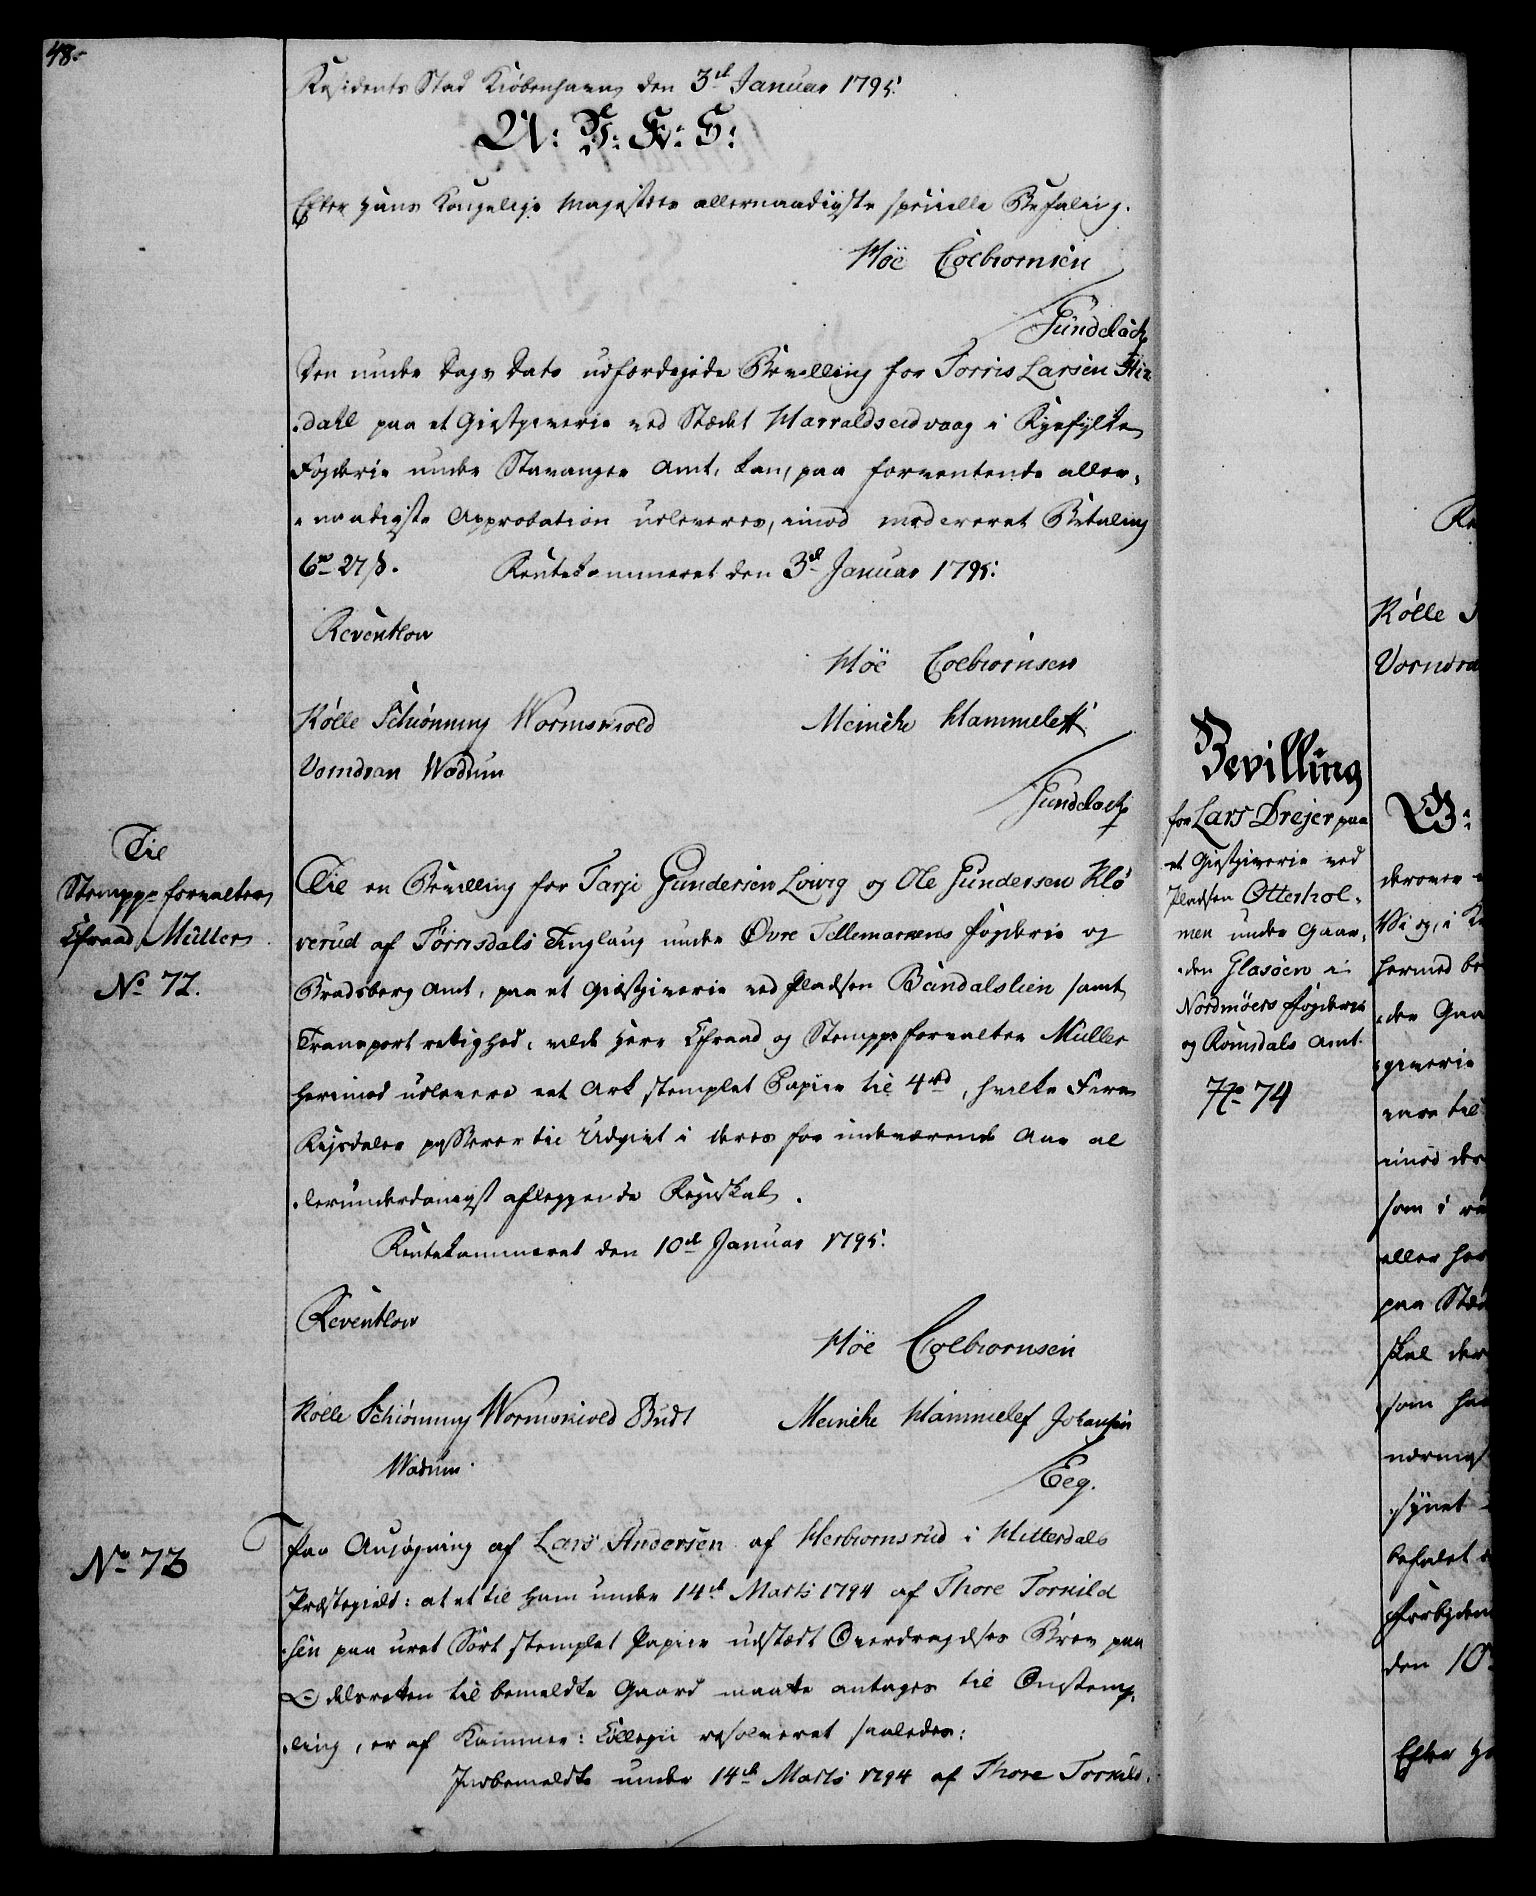 48.
Residents Stad Kiöbenhavn den 3de Januar 1795.
Efter Hans Kongelige Majestets allernaadigste specielle Befaling.
Höe Colbiornsen
Gündelach
Den under Dags Dato udfærdigede Bevilling for Torris Larsen
dahl paa et Giestgiverie ved Stædet Harraldseidvaag i Ryefylke
Fogderie under Stavanger Amt, kan, paa forventende aller-
naadigste Approbation udleveres, imod modereret Betaling
6rd 27 s. Rentekammeret den 3de Januar 1795.
Reventlow
Höe Colbiørnsen
Rølle Schiønning Wormskiold Meincke Hammeleff
Vorndran Wadum
Gündelach
Til
Stemppe forvalter
Etsraad Müller
No 72.
Til en Bevilling for Tarje Gundersen Loivig og Ole Gundersen Klö
verud af Tørrisdals Tinglaug under Øvre Tellemarkens Fogderie og
Bradsberg Amt, paa et Giestgiverie ved Pladsen Bandalslien samt
Transport rettighed, vilde Herr Etsraad og Stemppeforvalter Müller
herimod udlevere eet Ark stemplet Papiir til 4rd, hvilke Fire
Rixdaler passerer til Udgivt i deres for indeværende Aar al
lerunderdanigst aflæggende Regnskab.
Rentekammeret den 10de Januar 1795.
Reventlow
Höe Colbiornsen
Rølle Schiønning Wormskiold Budt Meincke Hammeleff Johansen
Wadum. Eeg.
No 73
Paa Ansøgning af Lars Andersen af Herbiornsrud i Hitterdals
Præstegield: at et til ham under 14de Marts 1794 af Thore Torkild
sen paa uret Sort stemplet Papiir udstædt Overdragelses Brev paa
Odelsretten til bemeldte Gaard maatte antages til Omstemp-
ling, er af Kammer-Collegii resolveret saaledes:
Indbemeldte under 14de Marts 1794 af Thore Torkild-
Bevilling
for Lars Drejer paa
et Giestgiverie ved
Pladsen Otterhol-
men under Gaar-
den Glasöen i
Nordmöers Fogderie
og Romsdals Amt.
No 74
Rølle
deroven
hermed be
der Gaa
giverie
være til
imod der
som i
eller her
paa Stæd
skal der
som
befalet
den 10
Efter